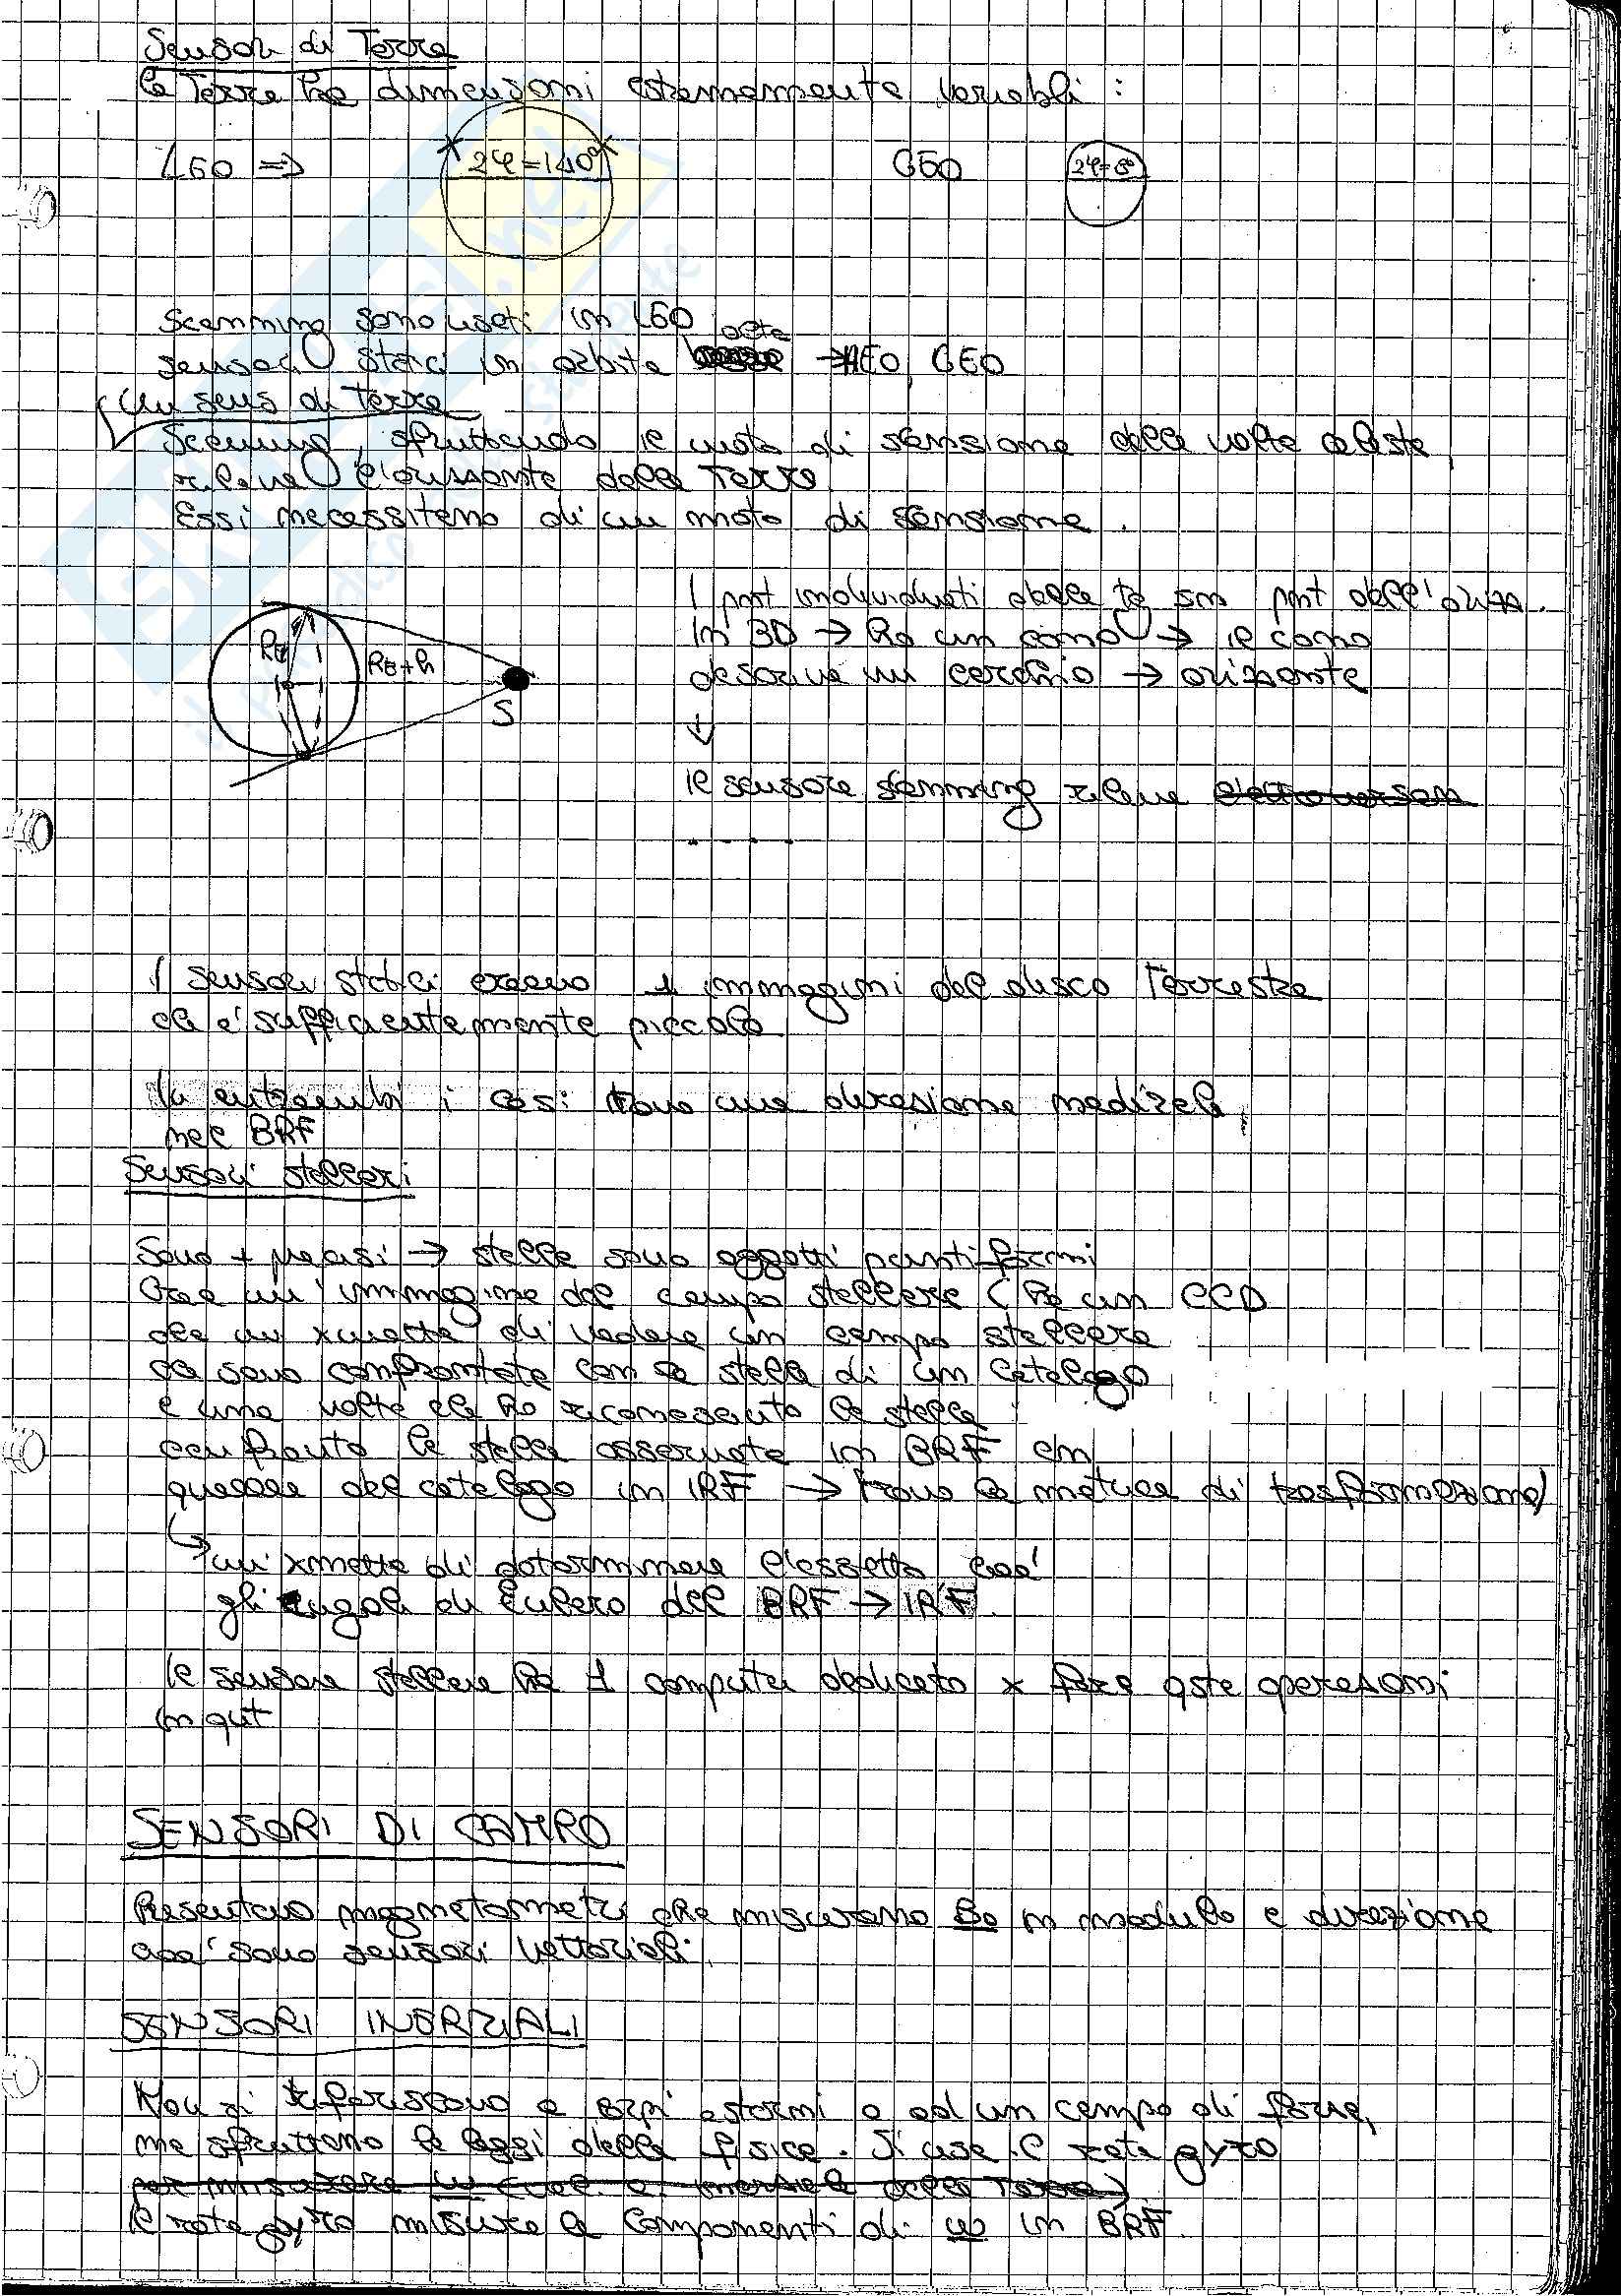 Sensori di Terra
la Terra ha dimensioni estremamente variabili :
LEO ⇒ 2φ=140° GEO 2φ=8°
Scanning sono usati in LEO
alte
sensori statici in orbite → HEO, GEO
un sens di Terra
Scanning, sfruttando il moto di scansione della volta celeste,
rileva l'orizzonte della Terra
Essi necessitano di un moto di scansione.
I pnt individuati dalle tg sn pnt dell'orizz.
In 3D → ho un cono → il cono
descrive un cerchio → orizzonte
R⊕
R⊕+h
S
↓
il sensore scanning rileva
. . . .
I sensori statici creano 1 immagini del disco Terrestre
ch e' sufficientemente piccolo
In entrambi i casi trovo una direzione nadirale
nel BRF
Sensori stellari
Sono + precisi → stelle sono oggetti puntiformi
Crea un'immagine del campo stellare (ha un CCD
che mi xmette di vedere un campo stellare
ch sono confrontate con le stelle di un catalogo
e una volta ch ho riconosciuto le stelle
confronto le stelle osservate in BRF cn
quelle del catalogo in IRF → trovo la matrice di trasformazione)
↳ mi xmette di determinare l'assetto cioè
gli angoli di Eulero del BRF → IRF.
Il sensore stellare ha 1 computer dedicato x fare qste operazioni
in qnt
SENSORI DI CAMPO
Presentano magnetometri che misurano B⊕ in modulo e direzione
cioè sono sensori vettoriali.
SENSORI INERZIALI
Non si riferiscono a corpi esterni o ad un campo di forze,
ma sfruttano le leggi della fisica. Si usa il rate gyro
per misurare ω (vel. ang. inerziale della Terra)
Il rate gyro misura le componenti di ω in BRF.